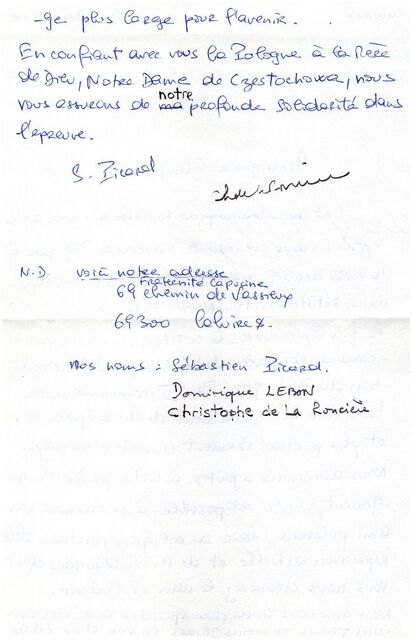 -ge plus large pour l'avenir.
En confiant avec vous la Pologne à la Mère
de Dieu, Notre Dame de Czestochowa, nous
vous assurons de notre profonde solidarité dans
l'épreuve.
S. Picard
N.D. voici notre adresse
Fraternité Capucine
69 chemin de Vassieux
69300 Caluire.
Nos noms : Sébastien Picard.
Dominique LEBON
Christophe de La Roncière